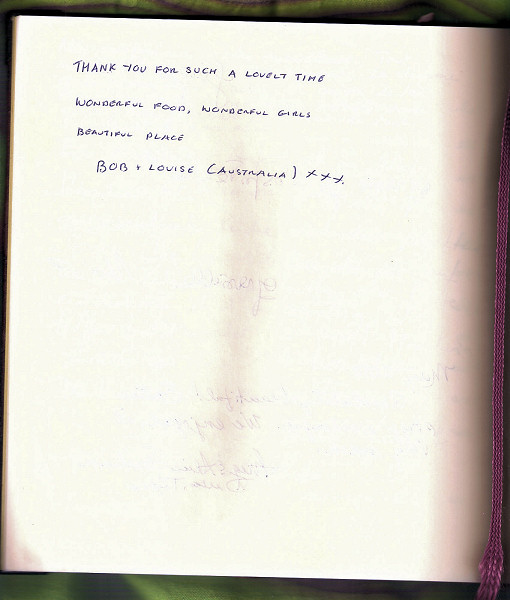 THANK YOU FOR SUCH A LOVELY TIME
WONDERFUL FOOD, WONDERFUL GIRLS
BEAUTIFUL PLACE
BOB + LOUISE (AUSTRALIA) XXX.